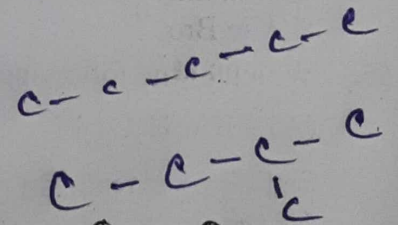 C - C - C - C - C
C - C - C - C
|
C